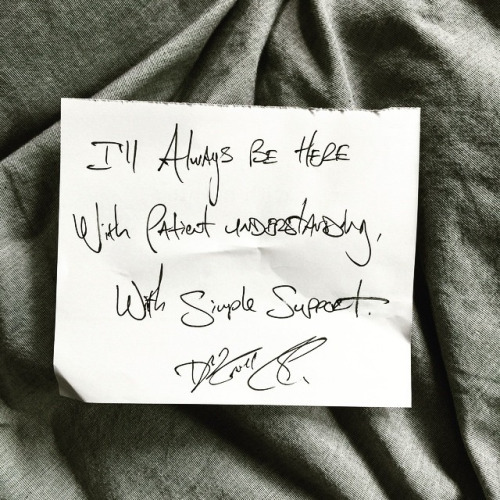 I'll Always BE HERE
With Patient UNDERSTANDing,
With Simple Support.